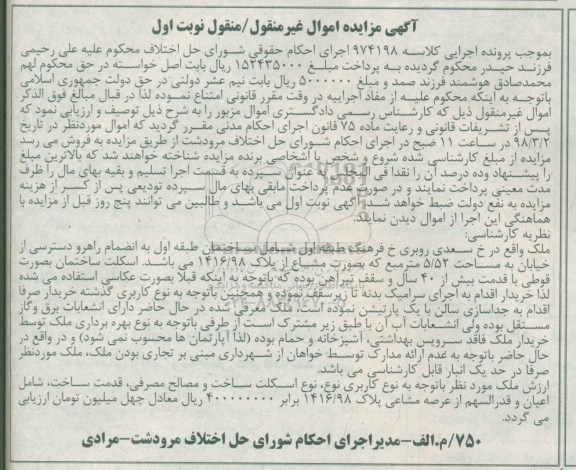 آگهی مزایده اموال غیرمنقول/منقول نوبت اول
بموجب پرونده اجرایی کلاسه ۹۷۴۱۹۸ اجرای احکام حقوقی شورای حل اختلاف محکوم علیه علی رحیمی
فرزند حیدر محکوم گردیده به پرداخت مبلغ ۱۵۲۴۳۵۰۰۰ ریال بابت اصل خواسته در حق محکوم لهم
محمدصادق هوشمند فرزند صمد و مبلغ ۵۰۰۰۰۰۰ ریال بابت نیم عشر دولتی در حق دولت جمهوری اسلامی
باتوجه به اینکه محکوم علیه از مفاد اجراییه در وقت مقرر قانونی امتناع نموده لذا در قبال مبالغ فوق الذکر
اموال غیرمنقول ذیل که کارشناس رسمی دادگستری اموال مزبور را به شرح ذیل توصیف و ارزیابی نمود که
پس از تشریفات قانونی و رعایت ماده ۷۵ قانون اجرای احکام مدنی مقرر گردید که اموال موردنظر در تاریخ
۹۸/۳/۲ در ساعت ۱۱ صبح در اجرای احکام شورای حل اختلاف مرودشت از طریق مزایده به فروش می رسد
مزایده از مبلغ کارشناسی شده شروع و شخص یا اشخاصی برنده مزایده شناخته خواهند شد که بالاترین مبلغ
را پیشنهاد وده درصد آن را نقدا فی المجلس به عنوان سپرده به قسمت اجرا تسلیم و بقیه بهای مال را ظرف
مدت معینی پرداخت نمایند و در صورت عدم پرداخت مابقی بهای مال سپرده تودیعی پس از کسر از هزینه
مزایده به نفع دولت ضبط خواهد شد. آگهی نوبت اول می باشد و طالبین می توانند پنج روز قبل از مزایده با
هماهنگی این اجرا از اموال دیدن نمایند.
نظریه کارشناسی:
ملک واقع در خ سعدی روبری خ فرهنگ طبقه اول شامل ساختمان طبقه اول به انضمام راهرو دسترسی از
خیابان به مساحت ۵/۵۲ مترمبع که بصورت مشاع از پلاک ۱۴۱۶/۹۸ می باشد. اسکلت ساختمان بصورت
قوطی با قدمت بیش از ۴۰ سال و سقف تیرآهن بوده که باتوجه به اینکه قبلا بصورت عکاسی استفاده می شده
لذا خریدار اقدام به اجرای سرامیک بدنه تا زیرسقف نموده و همچنین باتوجه به نوع کاربری گذشته خریدار صرفا
اقدام به جداسازی سالن با یک پارتیشن نموده است، ملک معرفی شده در حال حاضر دارای انشعابات برق وگاز
مستقل بوده ولی انشعابات آب آن با طبق زیر مشترک است از طرفی باتوجه به نوع بهره برداری ملک توسط
خریدار ملک فاقد سرویس بهداشتی، آشپزخانه و حمام بوده (لذا آپارتمان ها محسوب نمی شود) و در واقع در
حال حاضر باتوجه به عدم ارائه مدارک توسط خواهان از شهرداری مبنی بر تجاری بودن ملک، ملک موردنظر
صرفا در حد یک انبار قابل کارشناسی می باشد.
ارزش ملک مورد نظر باتوجه به نوع کاربری نوع، نوع اسکلت ساخت و مصالح مصرفی، قدمت ساخت، شامل
اعیان و قدرالسهم از عرصه مشاعی پلاک ۱۴۱۶/۹۸ برابر ۴۰۰۰۰۰۰۰۰ ریال معادل چهل میلیون تومان ارزیابی
می گردد.
۷۵۰/م.الف-مدیراجرای احکام شورای حل اختلاف مرودشت-مرادی